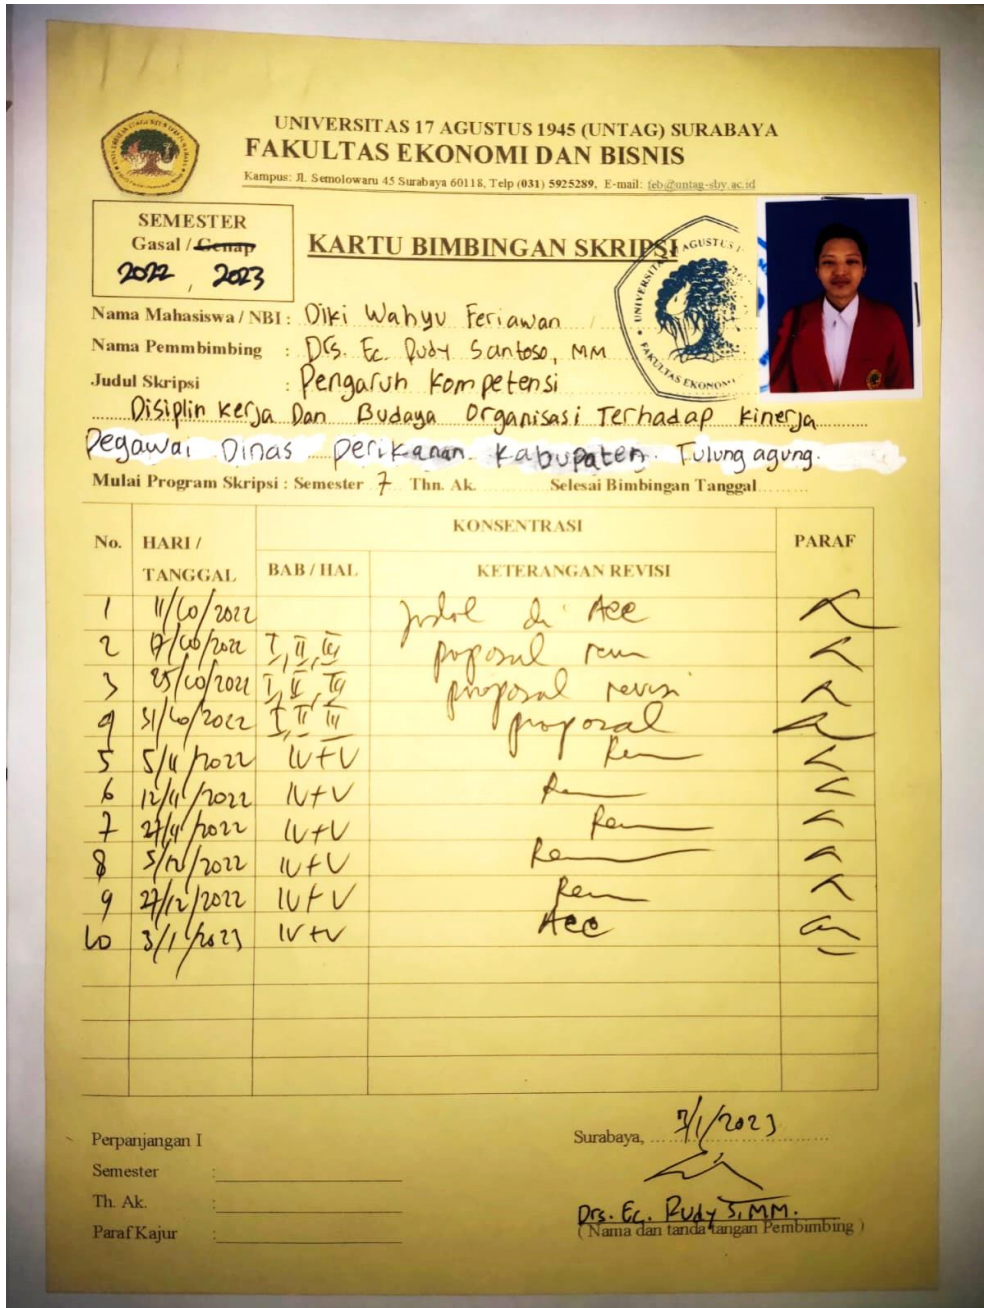 UNIVERSITAS 17 AGUSTUS 1945 (UNTAG) SURABAYA
FAKULTAS EKONOMI DAN BISNIS
Kampus: Jl. Semolowaru 45 Surabaya 60118, Telp (031) 5925289, E-mail: feb@untag-sby.ac.id
SEMESTER
Gasal / Genap
2022, 2023
KARTU BIMBINGAN SKRIPSI
Nama Mahasiswa / NBI : Diki Wahyu Feriawan
Nama Pemmbimbing : Drs. Ec. Rudy Santoso, MM
Judul Skripsi : Pengaruh Kompetensi
Disiplin Kerja Dan Budaya Organisasi Terhadap Kinerja
Pegawai Dinas Perikanan Kabupaten Tulungagung.
Mulai Program Skripsi : Semester 7 Thn. Ak. Selesai Bimbingan Tanggal
No. HARI / TANGGAL KONSENTRASI PARAF
BAB / HAL KETERANGAN REVISI
1 11/10/2022 judul di Acc
2 17/10/2022 I, II, III proposal
3 25/10/2022 I, II, III proposal revisi
4 31/10/2022 I II III proposal
5 5/11/2022 IV+V
6 12/11/2022 IV+V
7 27/11/2022 IV+V
8 5/12/2022 IV+V
9 27/12/2022 IV+V
10 3/1/2023 IV+V Acc
Perpanjangan I
Semester :
Th. Ak. :
Paraf Kajur :
Surabaya, 3/1/2023
Drs. Ec. Rudy S, MM.
( Nama dan tanda tangan Pembimbing )